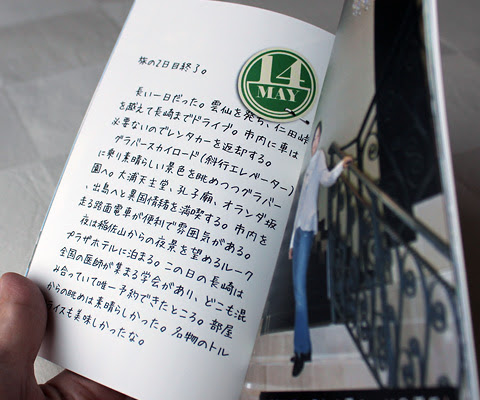 旅の2日目終了。
14
MAY
長い一日だった。雲仙を発ち、仁田峠
を越えて長崎までドライブ。市内に車は
必要ないのでレンタカーを返却する。
グラバースカイロード(斜行エレベーター)
に乗り素晴らしい景色を眺めつつグラバー
園へ。大浦天主堂、孔子廟、オランダ坂
、出島へと異国情緒を満喫する。市内を
走る路面電車が便利で雰囲気がある。
夜は稲佐山からの夜景を望めるルーク
プラザホテルに泊まる。この日の長崎は
全国の医師が集まる学会があり、どこも混
み合っていて唯一予約できたところ。部屋
からの眺めは素晴らしかった。名物のトル
コライスも美味しかったな。